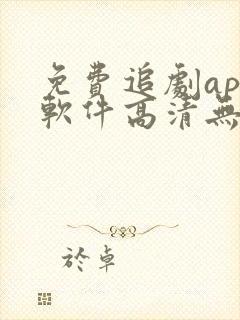 免費追劇ap
軟件高清無
於卓